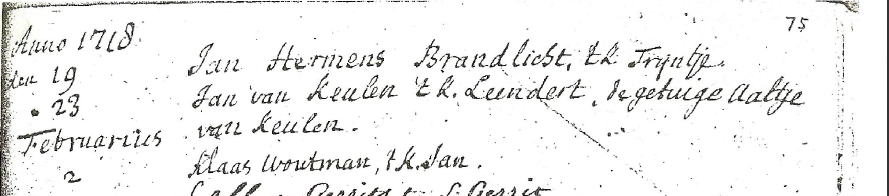 75
Anno 1718
den 19 Jan Hermens Brandlicht, t k Trijntje.
23 Jan van Keulen t k. Leendert, de getuige Aaltje
Februarius van Keulen.
2 Klaas Woutman, t k. Jan.